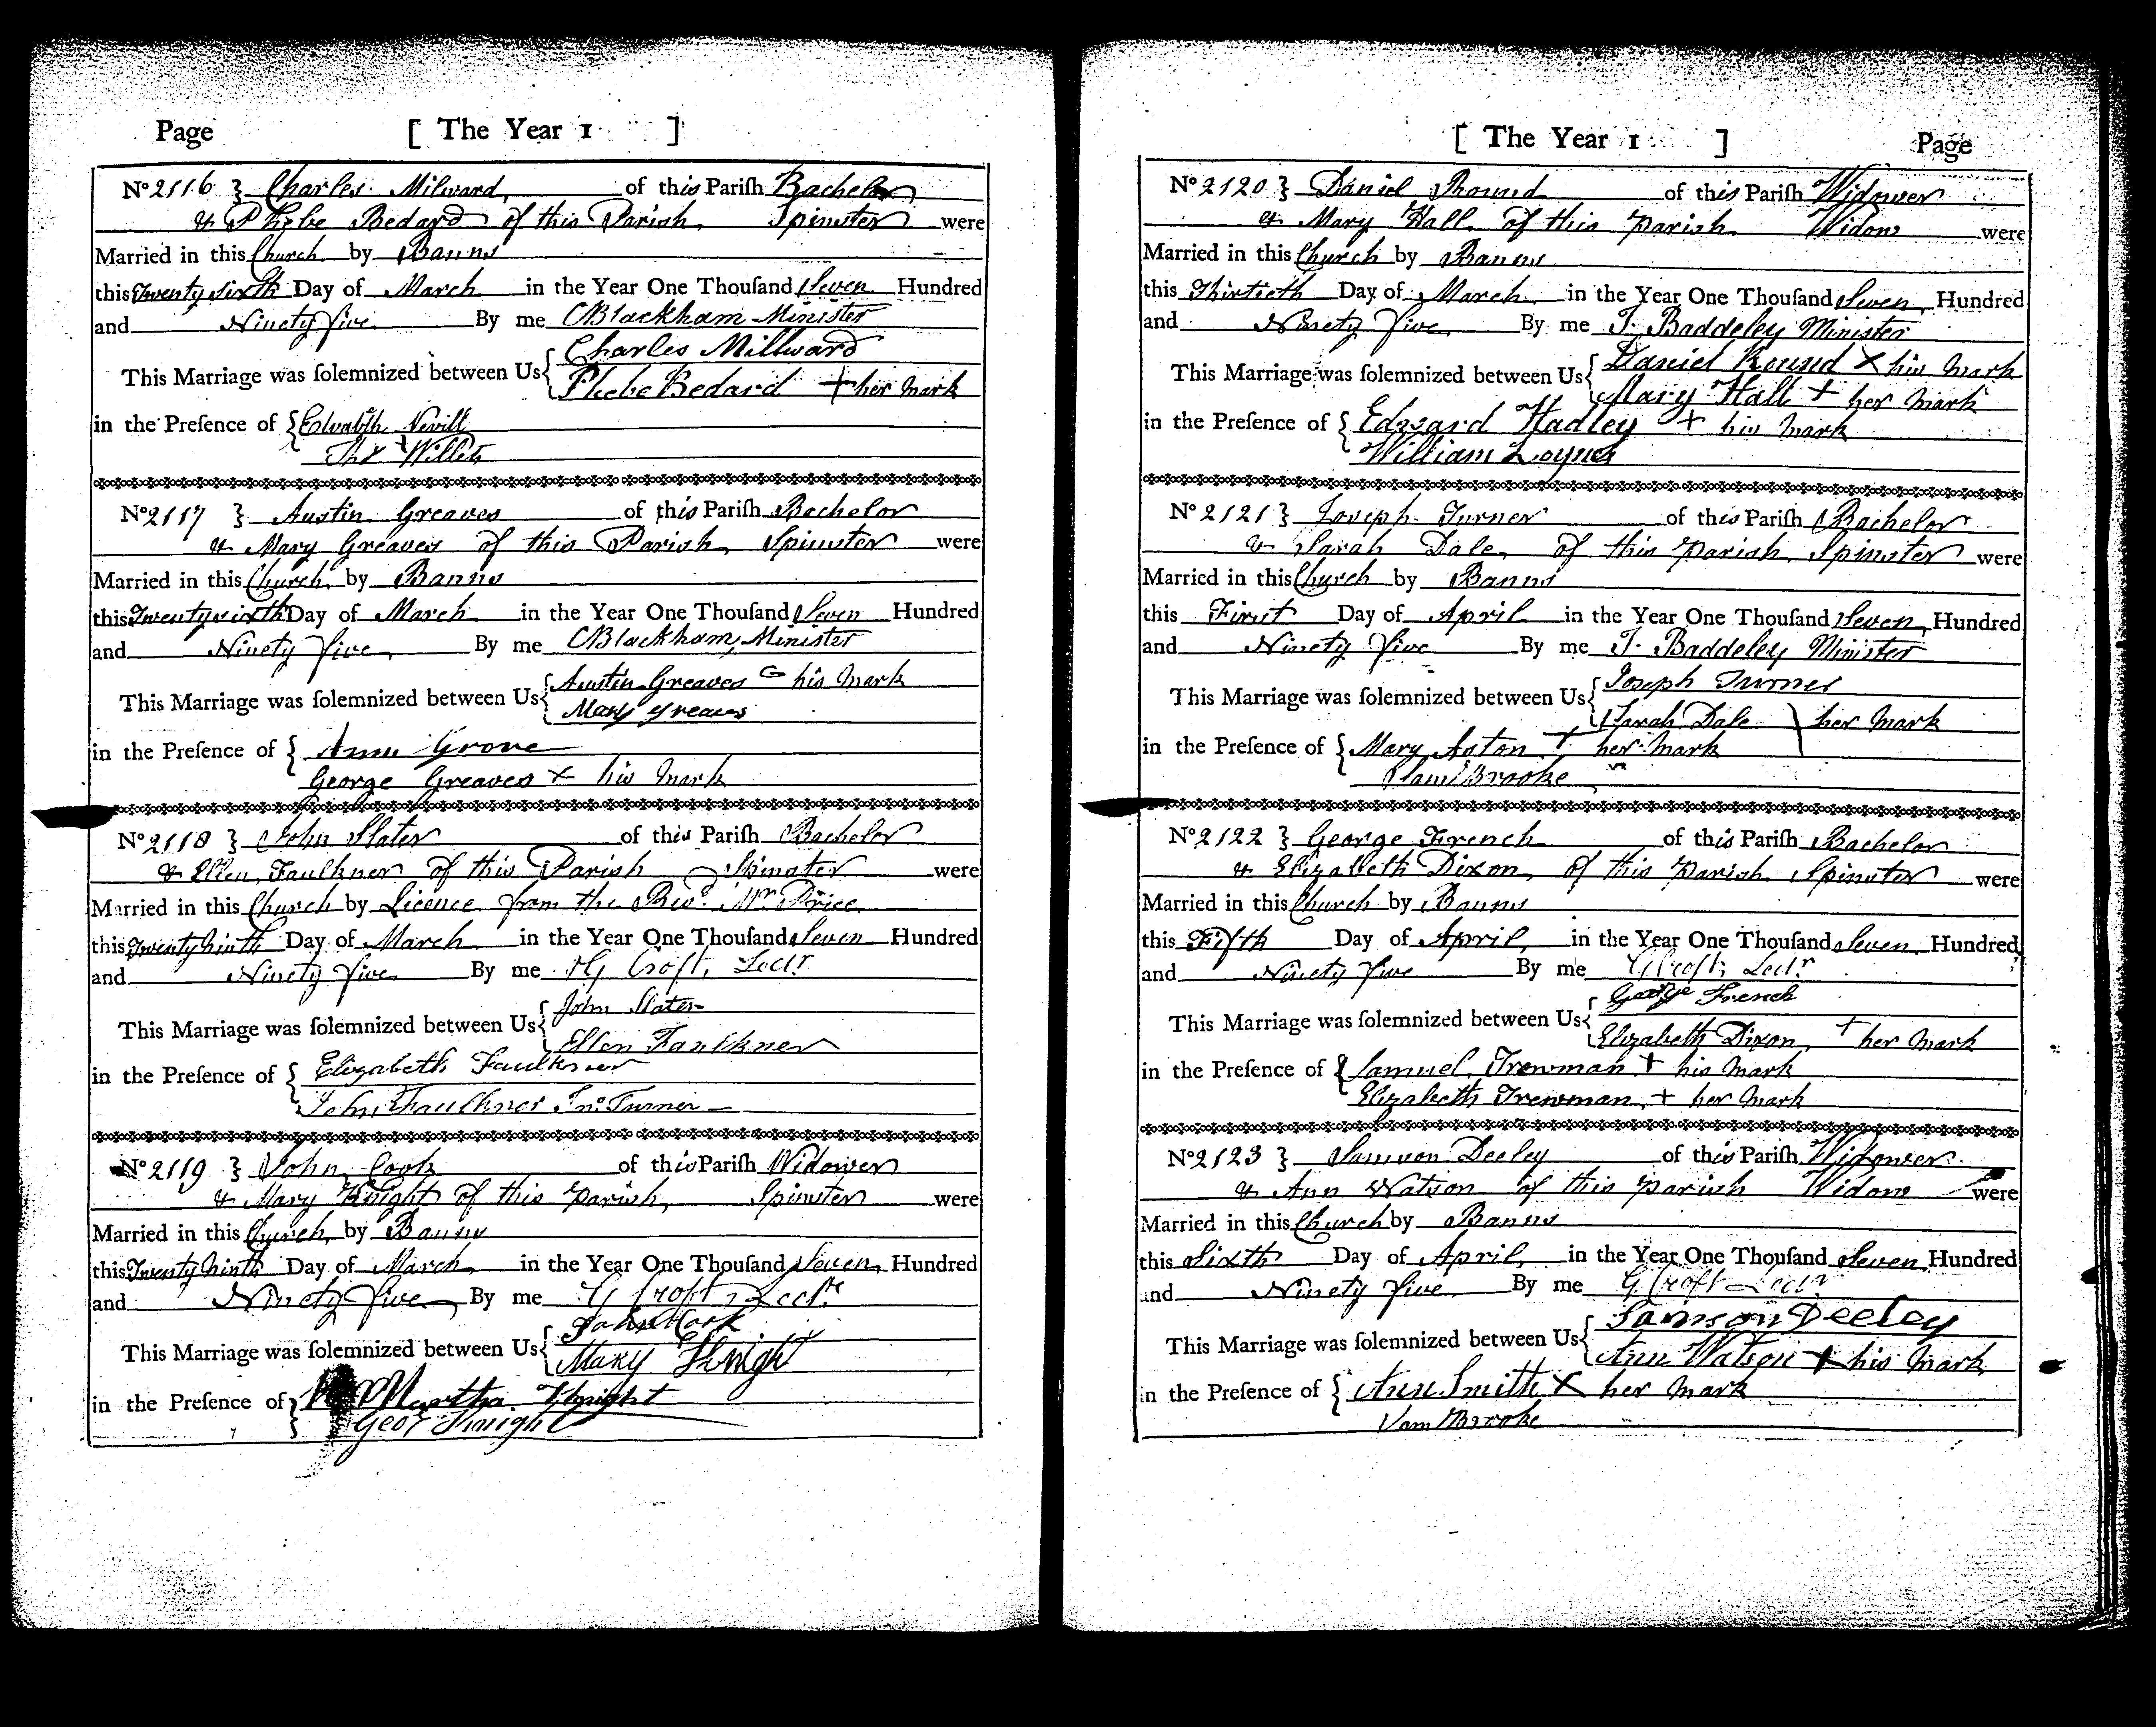 Page [ The Year 1 ]
No 2116 } Charles Milward of this Pariſh Bachelor
& Phebe Bedard of this Parish Spinster were
Married in this Church by Banns
this Twenty sixth Day of March in the Year One Thouſand Seven Hundred
and Ninety five By me C Blackham Minister
This Marriage was ſolemnized between Us { Charles Millward
Phebe Bedard + her Mark
in the Preſence of { Nevill
Willets
No 2117 } Austin Greaves of this Pariſh Bachelor
& Mary Greaves of this Parish Spinster were
Married in this Church by Banns
this Twenty sixth Day of March in the Year One Thouſand Seven Hundred
and Ninety five By me C Blackham, Minister
This Marriage was ſolemnized between Us { Austin Greaves his Mark
Mary Greaves
in the Preſence of { Ann Grove
George Greaves x his Mark
No 2118 } John Slater of this Pariſh Bachelor
& Ellen Faulkner of this Parish Spinster were
Married in this Church by Licence from the Revd. Mr. Price
this Twenty Ninth Day of March in the Year One Thouſand Seven Hundred
and Ninety five By me G Croft, Lectr
This Marriage was ſolemnized between Us { John Slater
Ellen Faulkner
in the Preſence of { Elizabeth Faulkner
John Faulkner Jno. Turner
No 2119 } John Cook of this Pariſh Widower
& Mary Knight of this Parish, Spinster were
Married in this Church by Banns
this Twenty Ninth Day of March in the Year One Thouſand Seven Hundred
and Ninety five By me G Croft Lectr.
This Marriage was ſolemnized between Us { John Cook
Mary Knight
in the Preſence of { Martha Knight
Geor Knight
[ The Year 1 ] Page
No 2120 } Daniel Round of this Pariſh Widower
& Mary Hall of this Parish Widow were
Married in this Church by Banns
this Thirtieth Day of March in the Year One Thouſand Seven Hundred
and Ninety five By me T. Baddeley Minister
This Marriage was ſolemnized between Us { Daniel Round X his Mark
Mary Hall + her Mark
in the Preſence of { Edward Hadley + his Mark
William Loynes
No 2121 } Joseph Turner of this Pariſh Bachelor
& Sarah Dale, of this Parish Spinster were
Married in this Church by Banns
this First Day of April in the Year One Thouſand Seven Hundred
and Ninety five By me T. Baddeley Minister
This Marriage was ſolemnized between Us { Joseph Turner
Sarah Dale \ her Mark
in the Preſence of { Mary Aston + her Mark
Saml Brooke
No 2122 } George French of this Pariſh Bachelor
& Elizabeth Dixon, of this Parish Spinster were
Married in this Church by Banns
this Fifth Day of April, in the Year One Thouſand Seven Hundred
and Ninety five By me G Croft, Lectr
This Marriage was ſolemnized between Us { George French
Elizabeth Dixon, + her Mark
in the Preſence of { Samuel Trewman + his Mark
Elizabeth Trewman, + her Mark
No 2123 } Samson Deeley of this Pariſh Widower
& Ann Watson of this Parish Widow were
Married in this Church by Banns
this Sixth Day of April, in the Year One Thouſand Seven Hundred
and Ninety five By me G Croft Lectr
This Marriage was ſolemnized between Us { Samson Deeley
Ann Watson + his Mark
in the Preſence of { Ann Smith X her Mark
Sam Brooke